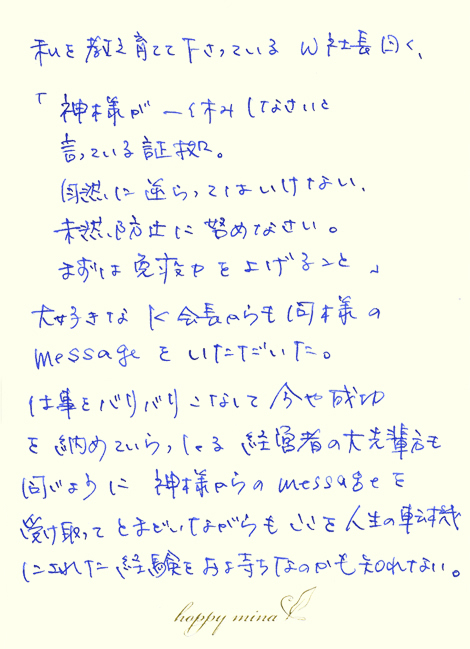 私を教え育てて下さっている W社長曰く、
「神様が一休みしなさいと
言っている証拠。
自然に逆らってはいけない、
未然防止に努めなさい。
まずは免疫力を上げること」
大好きなK会長からも同様の
messageをいただいた。
仕事をバリバリこなして今や成功
を納めていらっしゃる経営者の大先輩方も
同じように神様からのmessageを
受け取ってとまどいながらもここを人生の転機
にされた経験をお持ちなのかも知れない。
happy mina